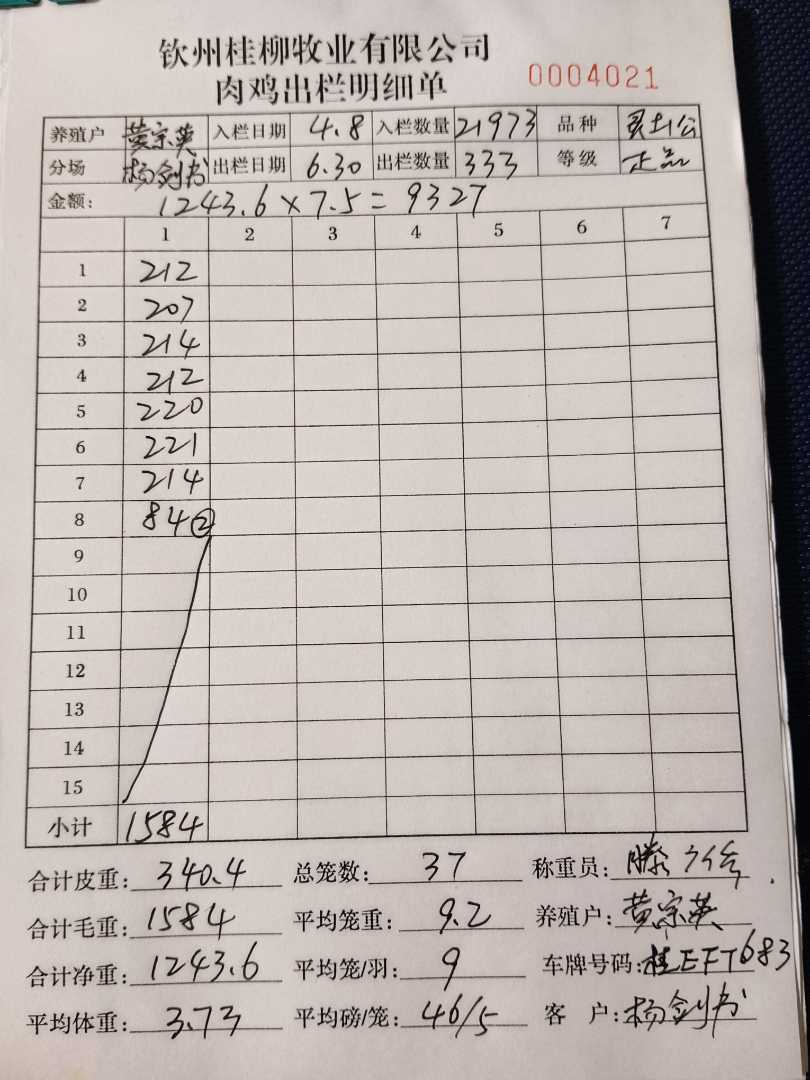 钦州桂柳牧业有限公司
肉鸡出栏明细单 0004021
养殖户 黄宗英 入栏日期 4.8 入栏数量 21973 品种 灵土公
分场 杨剑书 出栏日期 6.30 出栏数量 333 等级 正品
金额: 1243.6×7.5=9327
1 2 3 4 5 6 7
1 212
2 207
3 214
4 212
5 220
6 221
7 214
8 84②
9
10
11
12
13
14
15
小计 1584
合计皮重: 340.4 总笼数: 37 称重员: 滕
合计毛重: 1584 平均笼重: 9.2 养殖户: 黄宗英
合计净重: 1243.6 平均笼/羽: 9 车牌号码: 桂EFT683
平均体重: 3.73 平均磅/笼: 46/5 客 户: 杨剑书